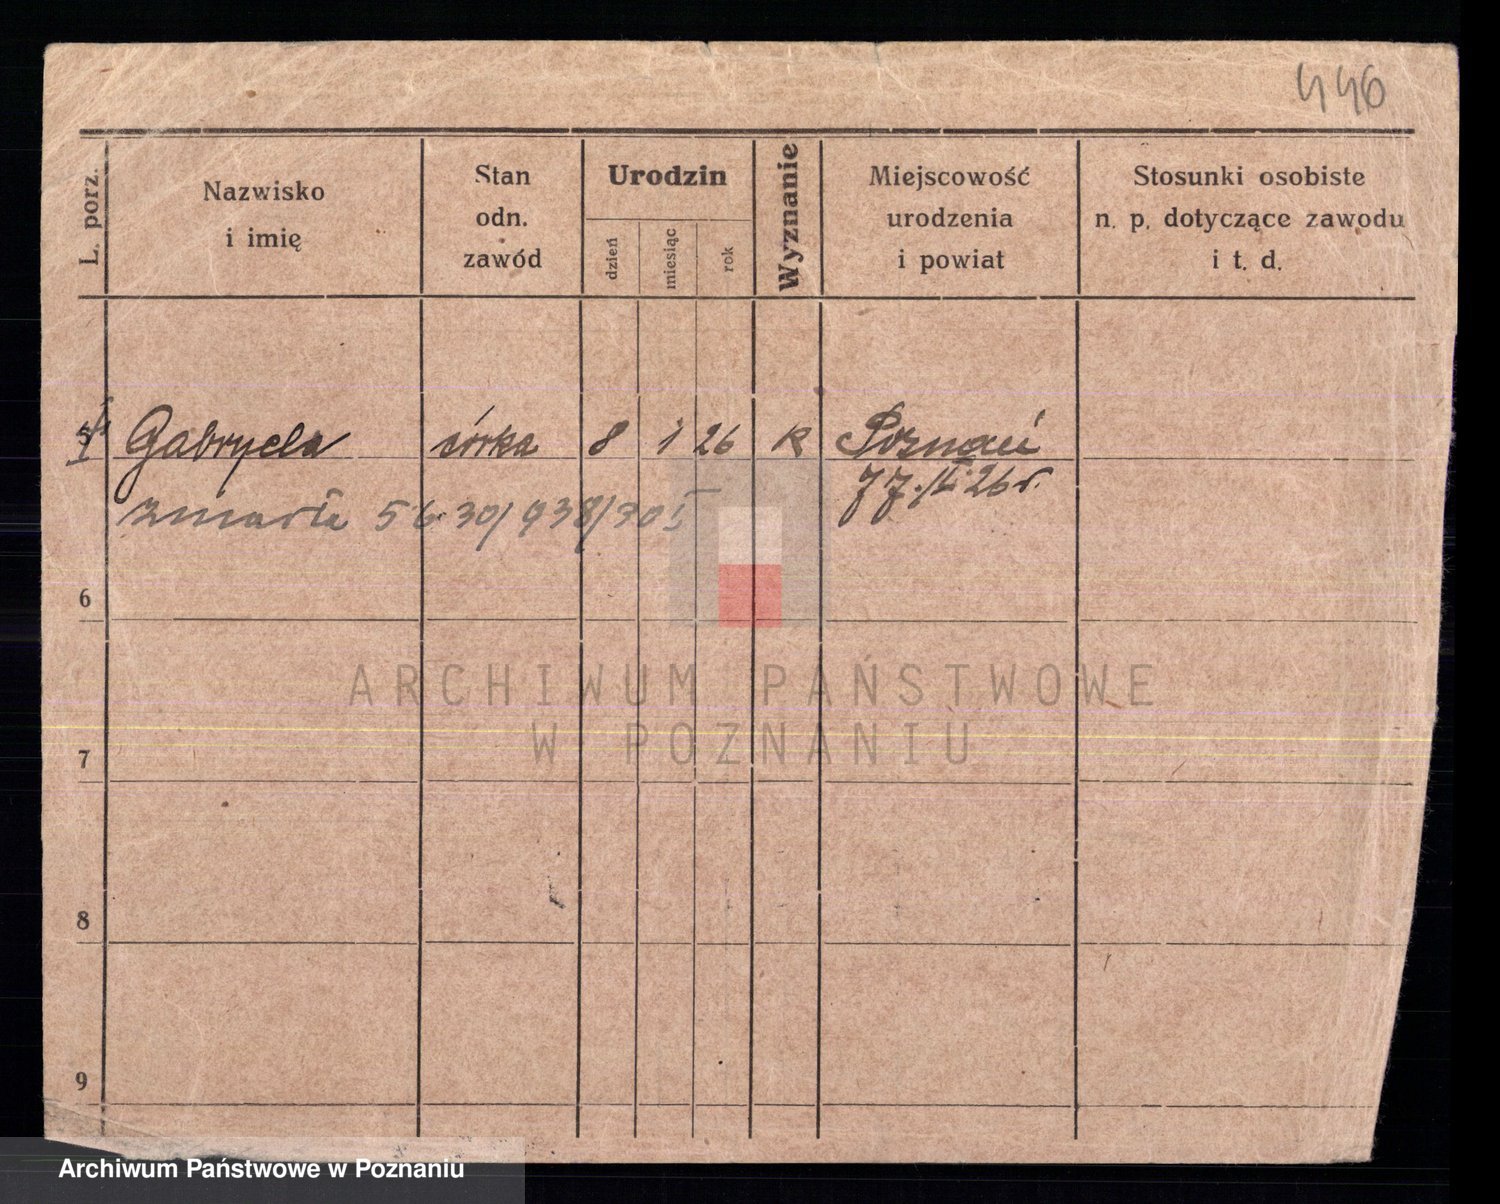 446
L. porz.
Nazwisko
i imię
Stan
odn.
zawód
Urodzin
dzień
miesiąc
rok
Wyznanie
Miejscowość
urodzenia
i powiat
Stosunki osobiste
n. p. dotyczące zawodu
i t. d.
5 Gabryela córka 8 1 26 k Poznań
26 r.
zmarła 5 6 30/938/30 I
6
7
8
9
ARCHIWUM PAŃSTWOWE
W POZNANIU
Archiwum Państwowe w Poznaniu